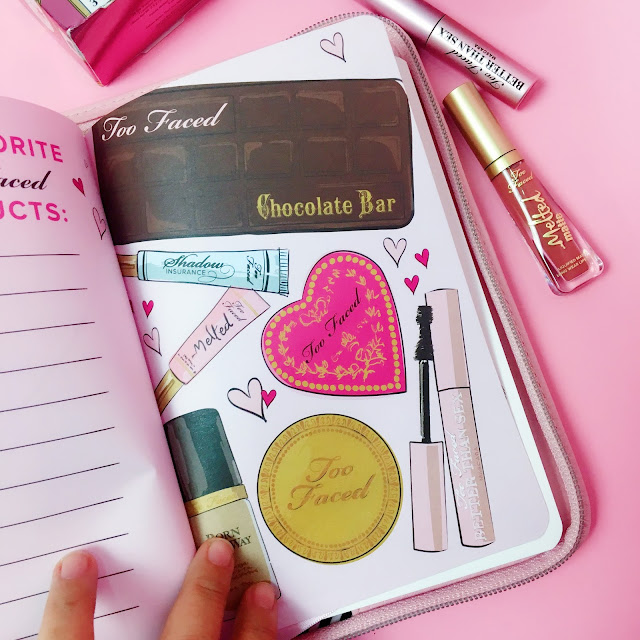 ORITE
aced
UCTS:
Too Faced
Chocolate Bar
Shadow
INSURANCE
Too Faced
Melted
Too Faced
Too Faced
BORN
WAY
Too
Faced
BETTER THAN SEX
Too Faced
BETTER THAN SEX
MASCARA
Too Faced
Melted
matte